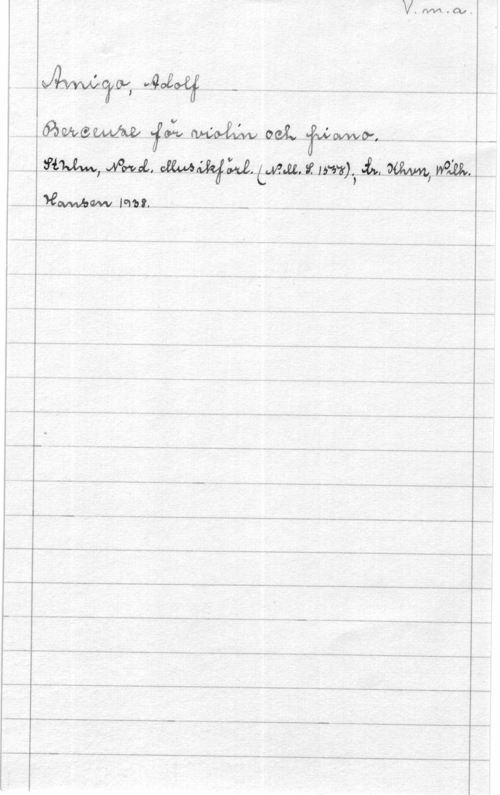 V. m. a.
Amigo, Adolf
Berceuse för violin och piano.
Sthlm, Nord. Musikförl. (N.M.S. 1588); tr. Khvn, Wilh.
Hansen 1938.